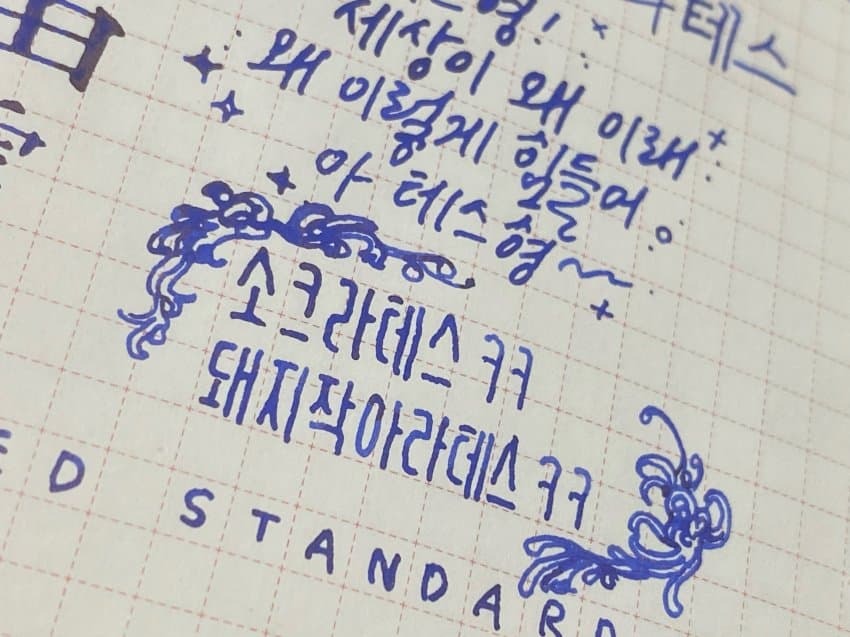 형! 테스
세상이 왜 이래
왜 이렇게 힘들어
아 테스형~~
소크라테스 ㅋㅋ
돼지작아라테스 ㅋㅋ
ED STANDARD